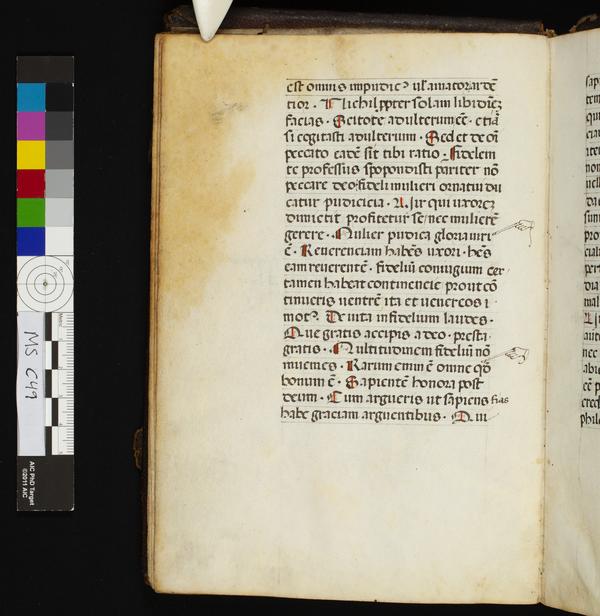 est omnis impudicꝰ ul' amator ardē
tior · Nichil ꝓpter solam libidinē
facias · Scitote adulterum eē · etiā
si cogitasti adulterium · Sed et de oī
peccato eadē sit tibi ratio · Fidelem
te professus spopondisti pariter nō
peccare deo · fideli mulieri ornatui du
catur pudicicia · Uir qui uxorez
dimictit profitetur se nec mulierē
gerere · Mulier pudica gloria uiri
ē · Reuerenciam habēs uxori · hēs
eam reuerentē · fideliū coniugium cer
tamen habeat continencie prout cō
tinueris uentrē ita et uenereos
motꝰ · De uita infidelium laudes ·
Que gratis accipis a deo · presta
gratis · Multitudinem fideliū nō
inuenies · Rarum enim ē omne qđ
bonum ē · Sapientē honora post
deum · Cum argueris ut sapiens fias
habe graciam arguentibus · Qui
MS C49
AIC PhD Target
©2011 AIC